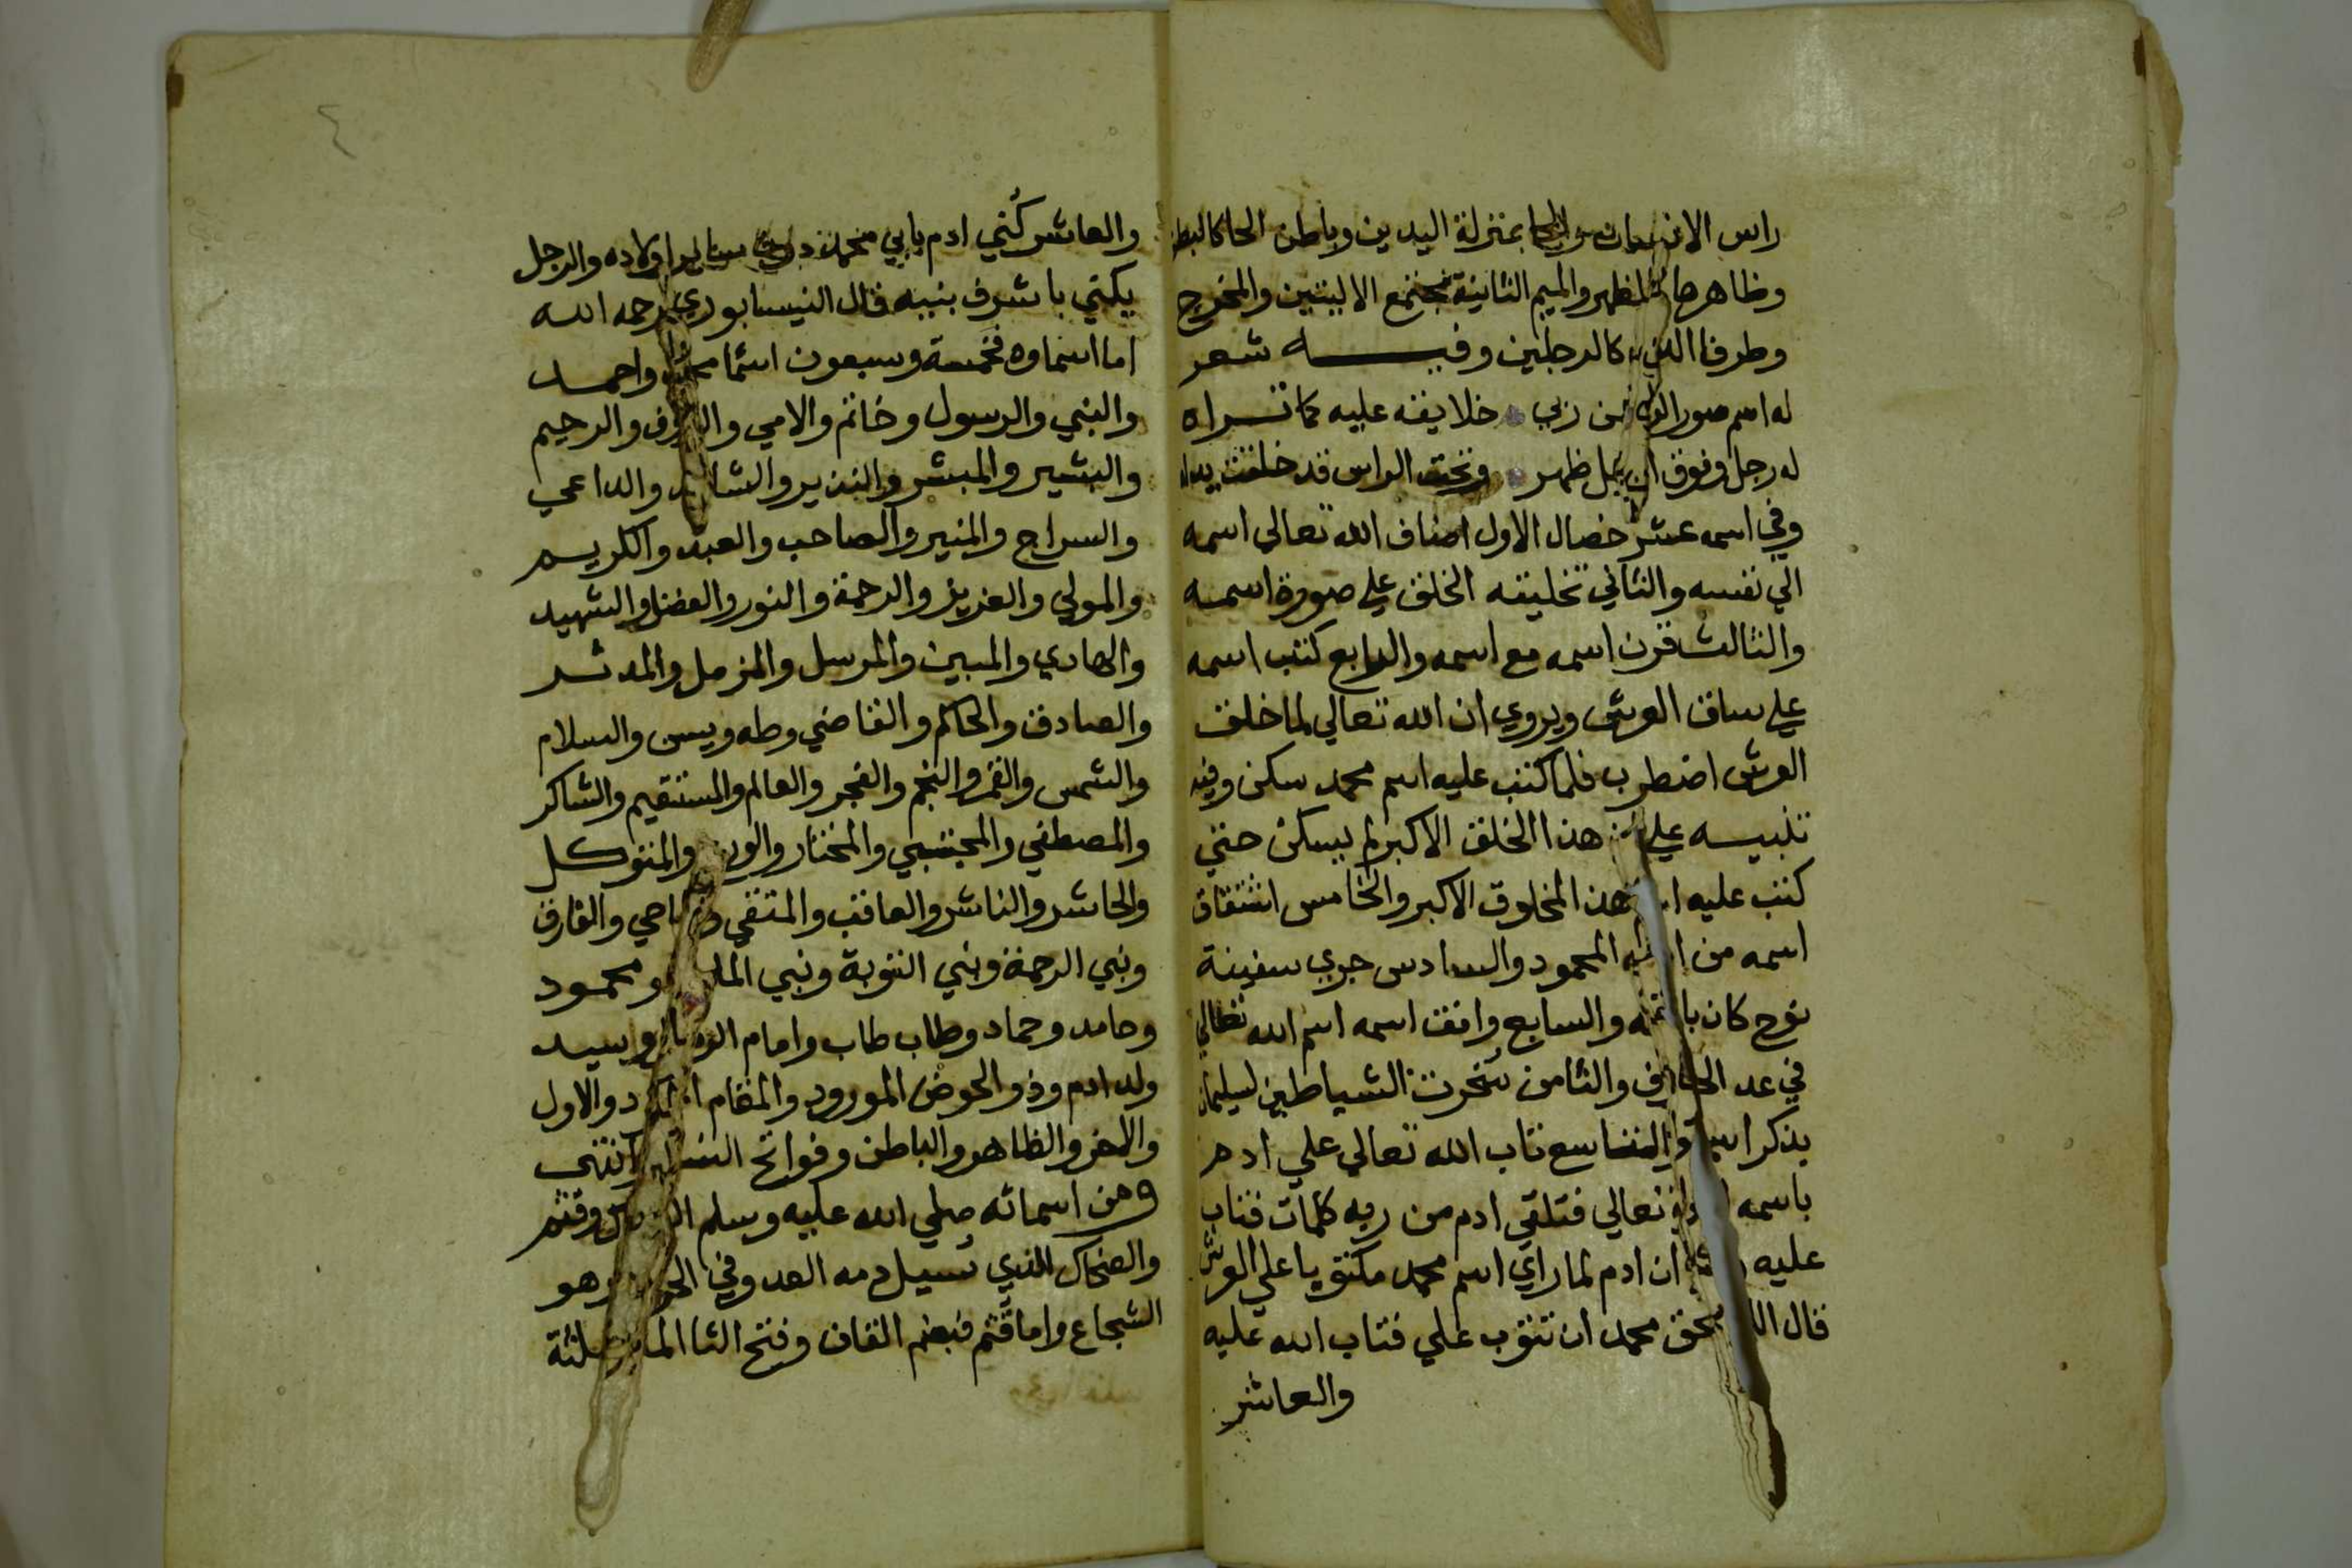 راس الانسان والحا بمنزلة اليدين وباطن الحا كالبطن
وظاهرها كالظهر والميم الثانية مجتمع الاليتين والمخرج
وطرفا الدال كالرجلين وفيه شعر
له اسم صور الرحمن ربي خلايقه عليه كما تراه
له رجل وفوق الرجل ظهر وتحت الراس قد خلقت يداه
وفي اسمه عشر خصال الاول اضاف الله تعالي اسمه
الي نفسه والثاني تخليقه الخلق علي صورة اسمه
والثالث قرن اسمه مع اسمه والرابع كتب اسمه
علي ساق العرش ويروي ان الله تعالي لما خلق
العرش اضطرب فلما كتب عليه اسم محمد سكن وفيه
تنبيه علي هذا الخلق الاكبر لم يسكن حتي
كتب عليه اسم هذا المخلوق الاكبر والخامس اشتقاق
اسمه من اسمه المحمود والسادس جري سفينة
نوح كان باسمه والسابع وافق اسمه اسم الله تعالي
في عد الحروف والثامن سخرت الشياطين لسليمان
بذكر اسمه والتاسع تاب الله تعالي علي ادم
باسمه تعالي فتلقي ادم من ربه كلمات فتاب
عليه ان ادم لما راي اسم محمد مكتوبا علي العرش
قال اللهم بحق محمد ان تتوب علي فتاب الله عليه
والعاشر
والعاشر كُني ادم بابي محمد دون ساير اولاده والرجل
يكني باشرف بنيه قال النيسابوري رحمه الله
اما اسماوه فخمسة وسبعون اسما محمد واحمد
والنبي والرسول وخاتم والامي والروف والرحيم
والبشير والمبشر والنذير والشاهد والداعي
والسراج والمنير والصاحب والعبد والكريم
والمولي والعزيز والرحمة والنور والفضل والشهيد
والهادي والمبين والمرسل والمزمل والمدثر
والصادق والحاكم والقاضي وطه ويس والسلام
والشمس والقمر والنجم والفجر والعالم والمستقيم والشاكر
والمصطفي والمجتبي والمختار والمتوكل
والحاشر والناشر والعاقب والمتقي والماحي والفارق
ونبي الرحمة ونبي التوبة ونبي ومحمود
وحامد وحماد وطاب طاب وامام وسيد
ولد ادم وذو الحوض المورود والمقام المحمود والاول
والاخر والظاهر والباطن وفواتح السور انتهى
ومن اسمائه صلي الله عليه وسلم وقثم
والضحاك الذي تسيل دمه العدو في الحرب وهو
الشجاع واما قثم فبضم القاف وفتح الثا المثلثة